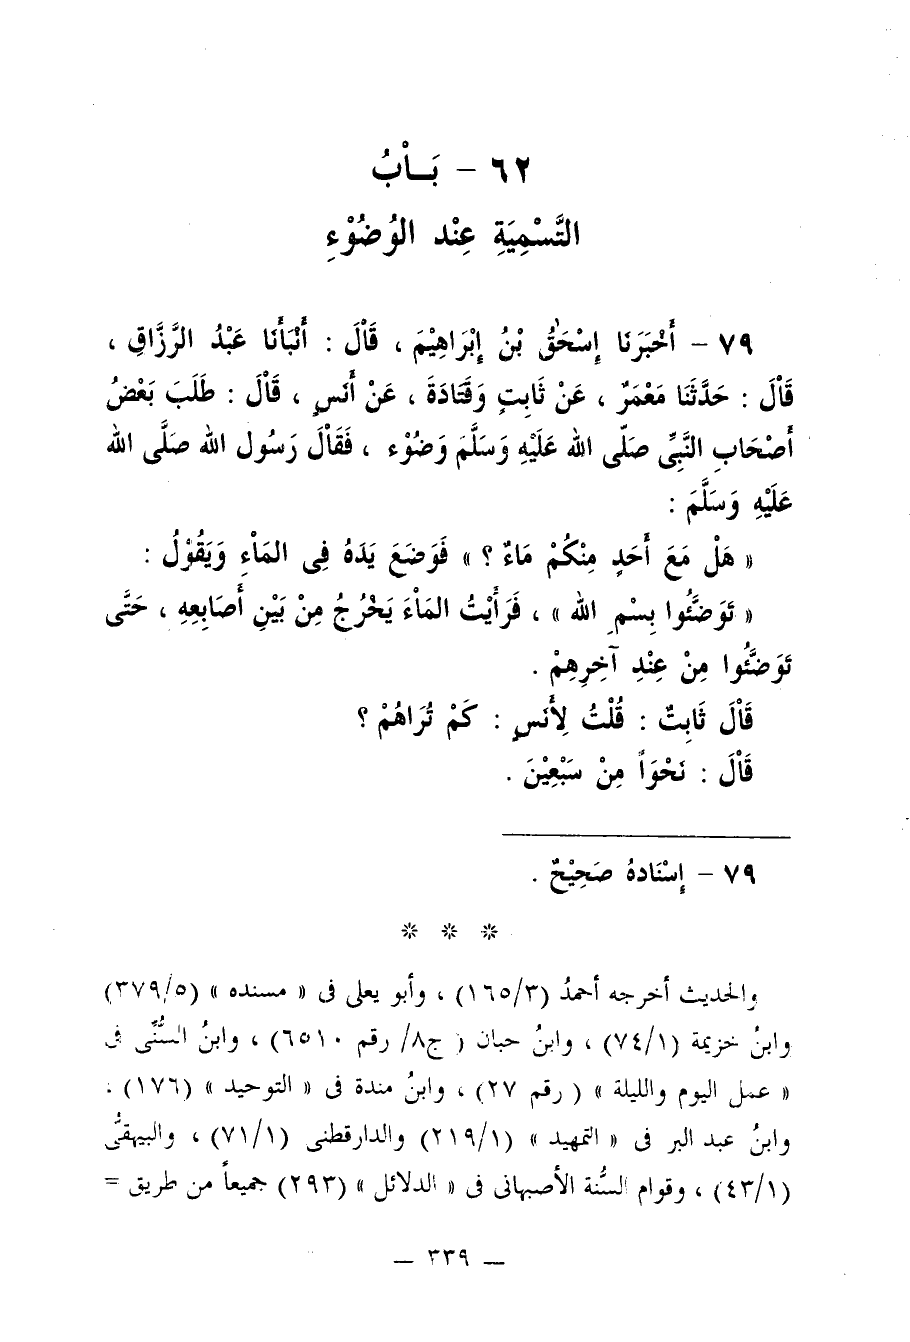 ٦٢ - بَــاْبُ
التَّسْمِيَةِ عِنْد الوُضُوْءِ
٧٩ - أَخْبَرَنَا إِسْحَقُ بْنُ إِبْرَاهِيْمَ ، قَاْلَ : أَنْبَأَنَا عَبْدُ الرَّزَّاقِ ،
قَاْلَ : حَدَّثَنَا مَعْمَرٌ ، عَنْ ثَابِتٍ وَقَتَادَةَ ، عَنْ أَنَسٍ ، قَاْلَ : طَلَبَ بَعْضُ
أَصْحَابِ النَّبِيِّ صَلّى الله عَلَيْهِ وَسَلَّمَ وَضُوْء ، فَقَاْلَ رَسُول الله صَلَّى الله
عَلَيْهِ وَسَلَّمَ :
« هَلْ مَعَ أَحَدٍ مِنْكُمْ مَاءٌ ؟ » فَوَضَعَ يَدَهُ فِى المَاْءِ وَيَقُوْلُ :
« تَوَضَّئُوا بِسْمِ الله » ، فَرَأَيْتُ المَاْءَ يَخْرُجُ مِنْ بَيْنِ أَصَابِعِهِ ، حَتَّى
تَوَضَّئُوا مِنْ عِنْدِ آخِرِهِمْ .
قَاْلَ ثَابِتٌ : قُلْتُ لِأَنَسٍ : كَمْ تُرَاهُمْ ؟
قَاْلَ : نَحْوَاً مِنْ سَبْعِيْنَ .
٧٩ - إِسْنَادهُ صَحِيْحٌ .
* * *
والحديث أخرجه أحمدُ (١٦٥/٣) ، وأبو يعلى فى « مسنده » (٣٧٩/٥)
وابنُ خزيمة (٧٤/١) ، وابنُ حبان ( ج٨/ رقم ٦٥١٠) ، وابنُ السُّنِّى فى
« عمل اليوم والليلة » ( رقم ٢٧) ، وابنُ مندة فى « التوحيد » (١٧٦) ،
وابنُ عبد البر فى « التمهيد » (٢١٩/١) والدارقطنى (٧١/١) ، والبيهقىُّ
(٤٣/١) ، وقوام السُّنة الأصبهانى فى « الدلائل » (٢٩٣) جميعاً من طريق =
— ٣٣٩ —